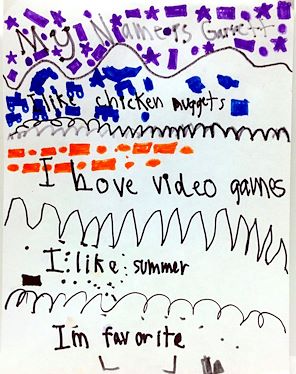 My Name is Garrett
I like chicken nuggets
I Love video games
I like summer
I'm favorite